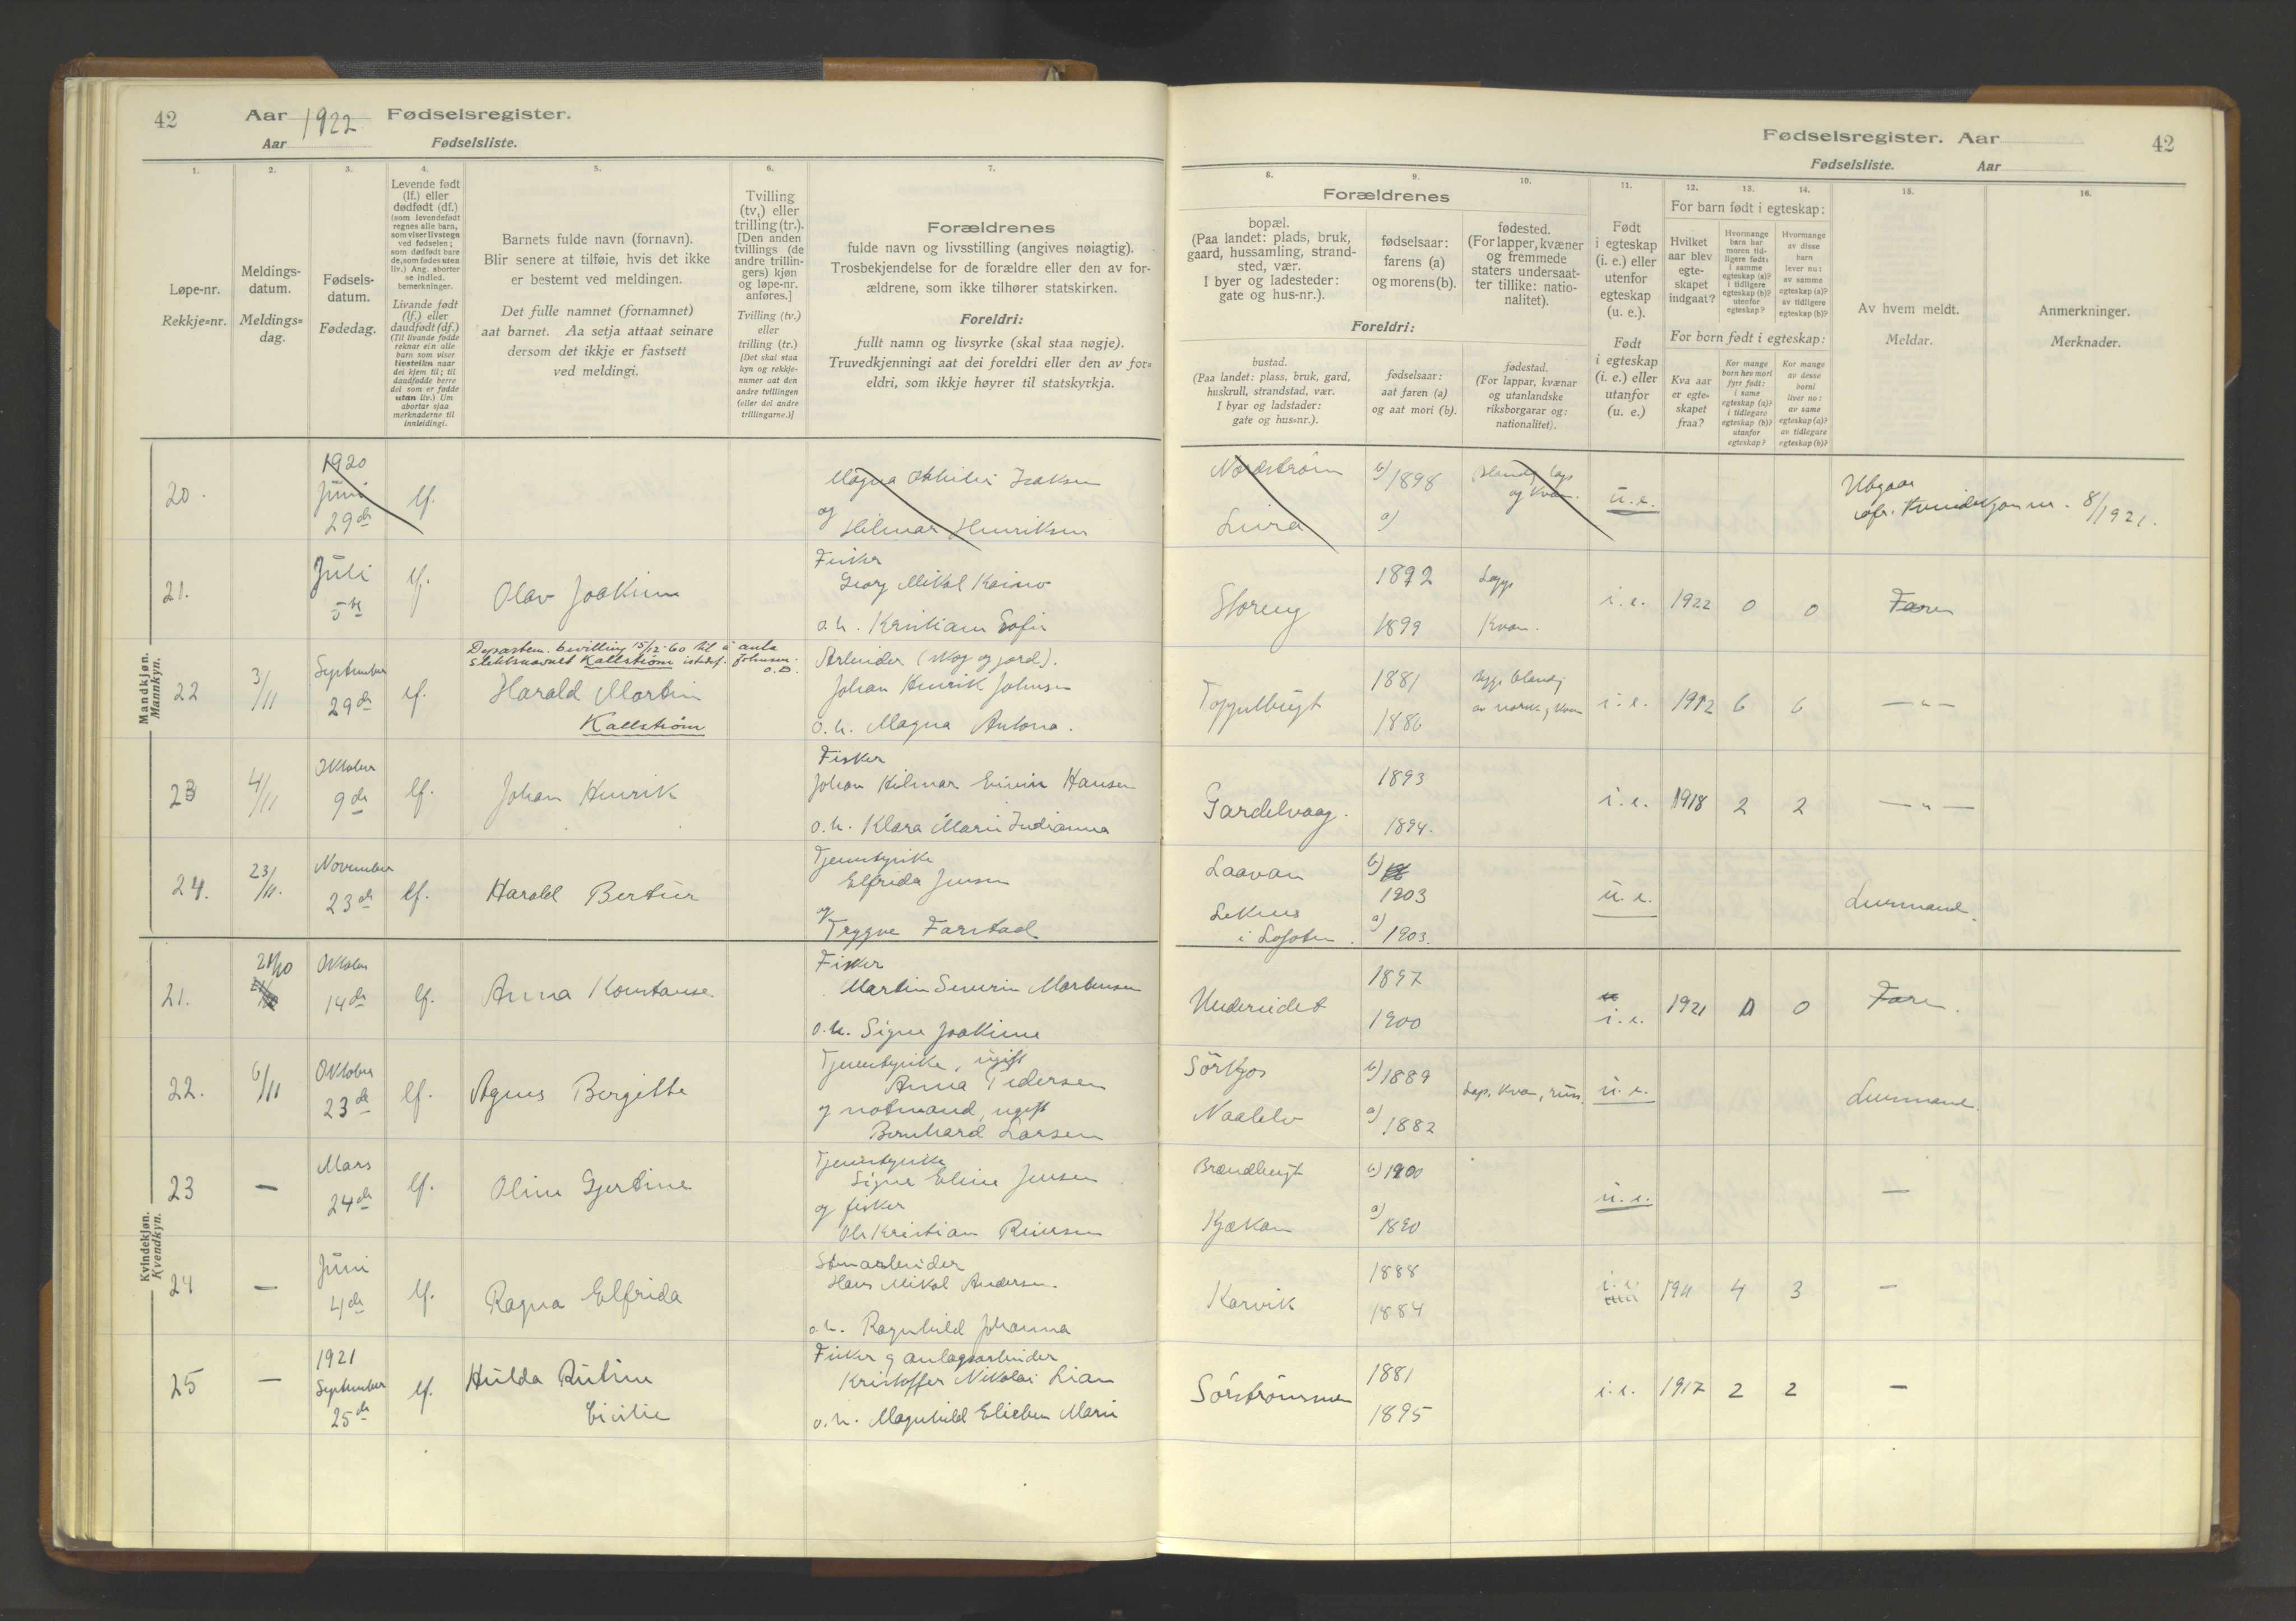 42 Aar 1922. Fødselsregister.
Aar Fødselsliste.
1. 2. 3. 4. 5. 6. 7.
Løpe-nr.
Rekkje=nr.
Meldings-
datum.
Meldings=
dag.
Fødsels-
datum.
Fødedag.
Levende født
(lf.) eller
dødfødt (df.)
(som levendefødt
regnes alle barn,
som viser livstegn
ved fødselen;
som dødfødt bare
de, som fødes uten
liv.) Ang. aborter
se indled.
bemerkninger.
Livande født
(lf.) eller
daudfødt (df.)
(Til livande fødde
reknar ein alle
barn som viser
livsteikn naar
dei kjem til; til
daudfødde berre
dei som er fødde
utan liv.) Um
abortar sjaa
merknaderne til
innleidingi.
Barnets fulde navn (fornavn).
Blir senere at tilføie, hvis det ikke
er bestemt ved meldingen.
Det fulle namnet (fornamnet)
aat barnet. Aa setja attaat seinare
dersom det ikkje er fastsett
ved meldingi.
Tvilling
(tv.) eller
trilling (tr.).
[Den anden
tvillings (de
andre trillin-
gers) kjøn
og løpe-nr.
anføres.]
Tvilling (tv.)
eller
trilling (tr.)
[Det skal staa
kyn og rekkje-
numer aat den
andre tvillingen
(eller dei andre
trillingarne.)]
Forældrenes
fulde navn og livsstilling (angives nøiagtig).
Trosbekjendelse for de forældre eller den av for-
ældrene, som ikke tilhører statskirken.
Foreldri:
fullt namn og livsyrke (skal staa nøgje).
Truvedkjenningi aat dei foreldri eller den av for=
eldri, som ikkje høyrer til statskyrkja.
Fødselsregister. Aar 42
Fødselsliste. Aar
8. 9. 10. 11. 12. 13. 14. 15. 16.
Forældrenes
bopæl.
(Paa landet: plads, bruk,
gaard, hussamling, strand-
sted, vær.
I byer og ladesteder:
gate og hus-nr.).
fødselsaar:
farens (a)
og morens (b).
fødested.
(For lapper, kvæner
og fremmede
staters undersaat-
ter tillike: natio-
nalitet).
Foreldri:
bustad.
(Paa landet: plass, bruk, gard,
huskrull, strandstad, vær.
I byar og ladstader:
gate og hus=nr.).
fødselsaar:
aat faren (a)
og aat mori (b).
fødestad.
(For lappar, kvænar
og utanlandske
riksborgarar og:
nationalitet).
Født
i egteskap
(i. e.) eller
utenfor
egteskap
(u. e.).
Født
i egteskap
(i. e.) eller
utanfor
(u. e.)
For barn født i egteskap:
Hvilket
aar blev
egte-
skapet
indgaat?
Hvormange
barn har
moren tid-
ligere født:
i samme
egteskap (a)?
i tidligere
egteskap (b)?
utenfor
egteskap?
Hvormange
av disse
barn
lever nu:
av samme
egteskap (a)?
av tidligere
egteskap (b)?
For born født i egteskap:
Kva aar
er egte=
skapet
fraa?
Kor mange
born hev mori
fyrr født:
i same
egteskap (a)?
i tidlegare
egteskap (b)?
utanfor
egteskap?
Kor mange
av desse
borni
liver no:
av same
egteskap (a)?
av tidlegare
egteskap (b)?
Av hvem meldt.
Meldar.
Anmerkninger.
Merknader.
Mandkjøn.
Mannkyn.
20. 1920
Juni
29de lf. Magna Othilie Isaksen
og
Hilmar Henriksen
Nordstrøm b) 1898
og Kvæn. u. e. Utgaar
8/1921.
a)
21. Juli
5te lf. Olav Joakim
Fisker
Georg Mikal Kaino
o. h. Kristiane Sofie
Storeng 1892 Lapp
1899 Kvæn. i. e. 1922 0 0 Faren
Departem. bevilling 15/12-60 til å anta
slektsnavnet Kallstrøm istedf. Johnsen.
O.D.
22 3/11 September
29de lf. Harald Martin
Kallstrøm
Arbeider (skog og jord).
Johan Henrik Johnsen
o. h. Magna Antona.
Toppelbugt 1881
1886 av norsk og kvæn i. e. 1912 6 6 — " —
23 4/11 Oktober
9de lf. Johan Henrik
Fisker
Johan Hilmar Eivin Hansen
o. h. Klara Marie Indianna
Gardelvaag. 1893
1894. i. e. 1918 2 2 — " —
24. 23/11. November
23de lf. Harald Bertin
Tjenestepike
Elfrida Jensen
og
Trygve Farstad
Laavan b)
1903
Leknes
i Lofoten. a) 1903. u. e. Lensmand.
Kvindekjøn.
Kvendkyn.
21. 21/10 Oktober
14de lf. Anna Konstanse
Fisker
Martin Severin Mortensen
o. h. Signe Joakime
Undereidet 1897
1900 i. e. 1921 0 Faren.
22. 6/11 Oktober
23de lf. Agnes Bergitte
Tjenestepike, ugift
Anna Pedersen
og notmand, ugift
Bernhard Larsen
Sörkjos b) 1889 Lap, Kvæn, russ. u. e. Lensmand.
a) 1882
23 — Mars
24de lf. Oline Gjertine
Tjenestepike
Signe Eline Jensen
og fisker
Ole Kristian Reiersen
Brændbugt b) 1900
Kjækan a) 1890 u. e. —
24 — Juni
4de lf. Ragna Elfrida
Hans Mikal Andersen.
o. h. Ragnhild Johanna
Karvik 1888
1884 i. e. 1911 4 3 —
25 — 1921
September
25de lf. Hulda Rutine
Cicilie
Fisker og anlægsarbeider
Kristoffer Nikolai Lian
o. h. Magnhild Eliebes Marie
Sörströmmen 1881
1895 i. e. 1917 2 2 —